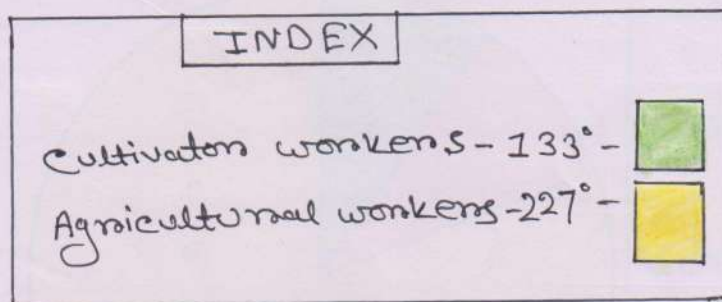 INDEX
Cultivators workers - 133° -
Agricultural workers - 227° -